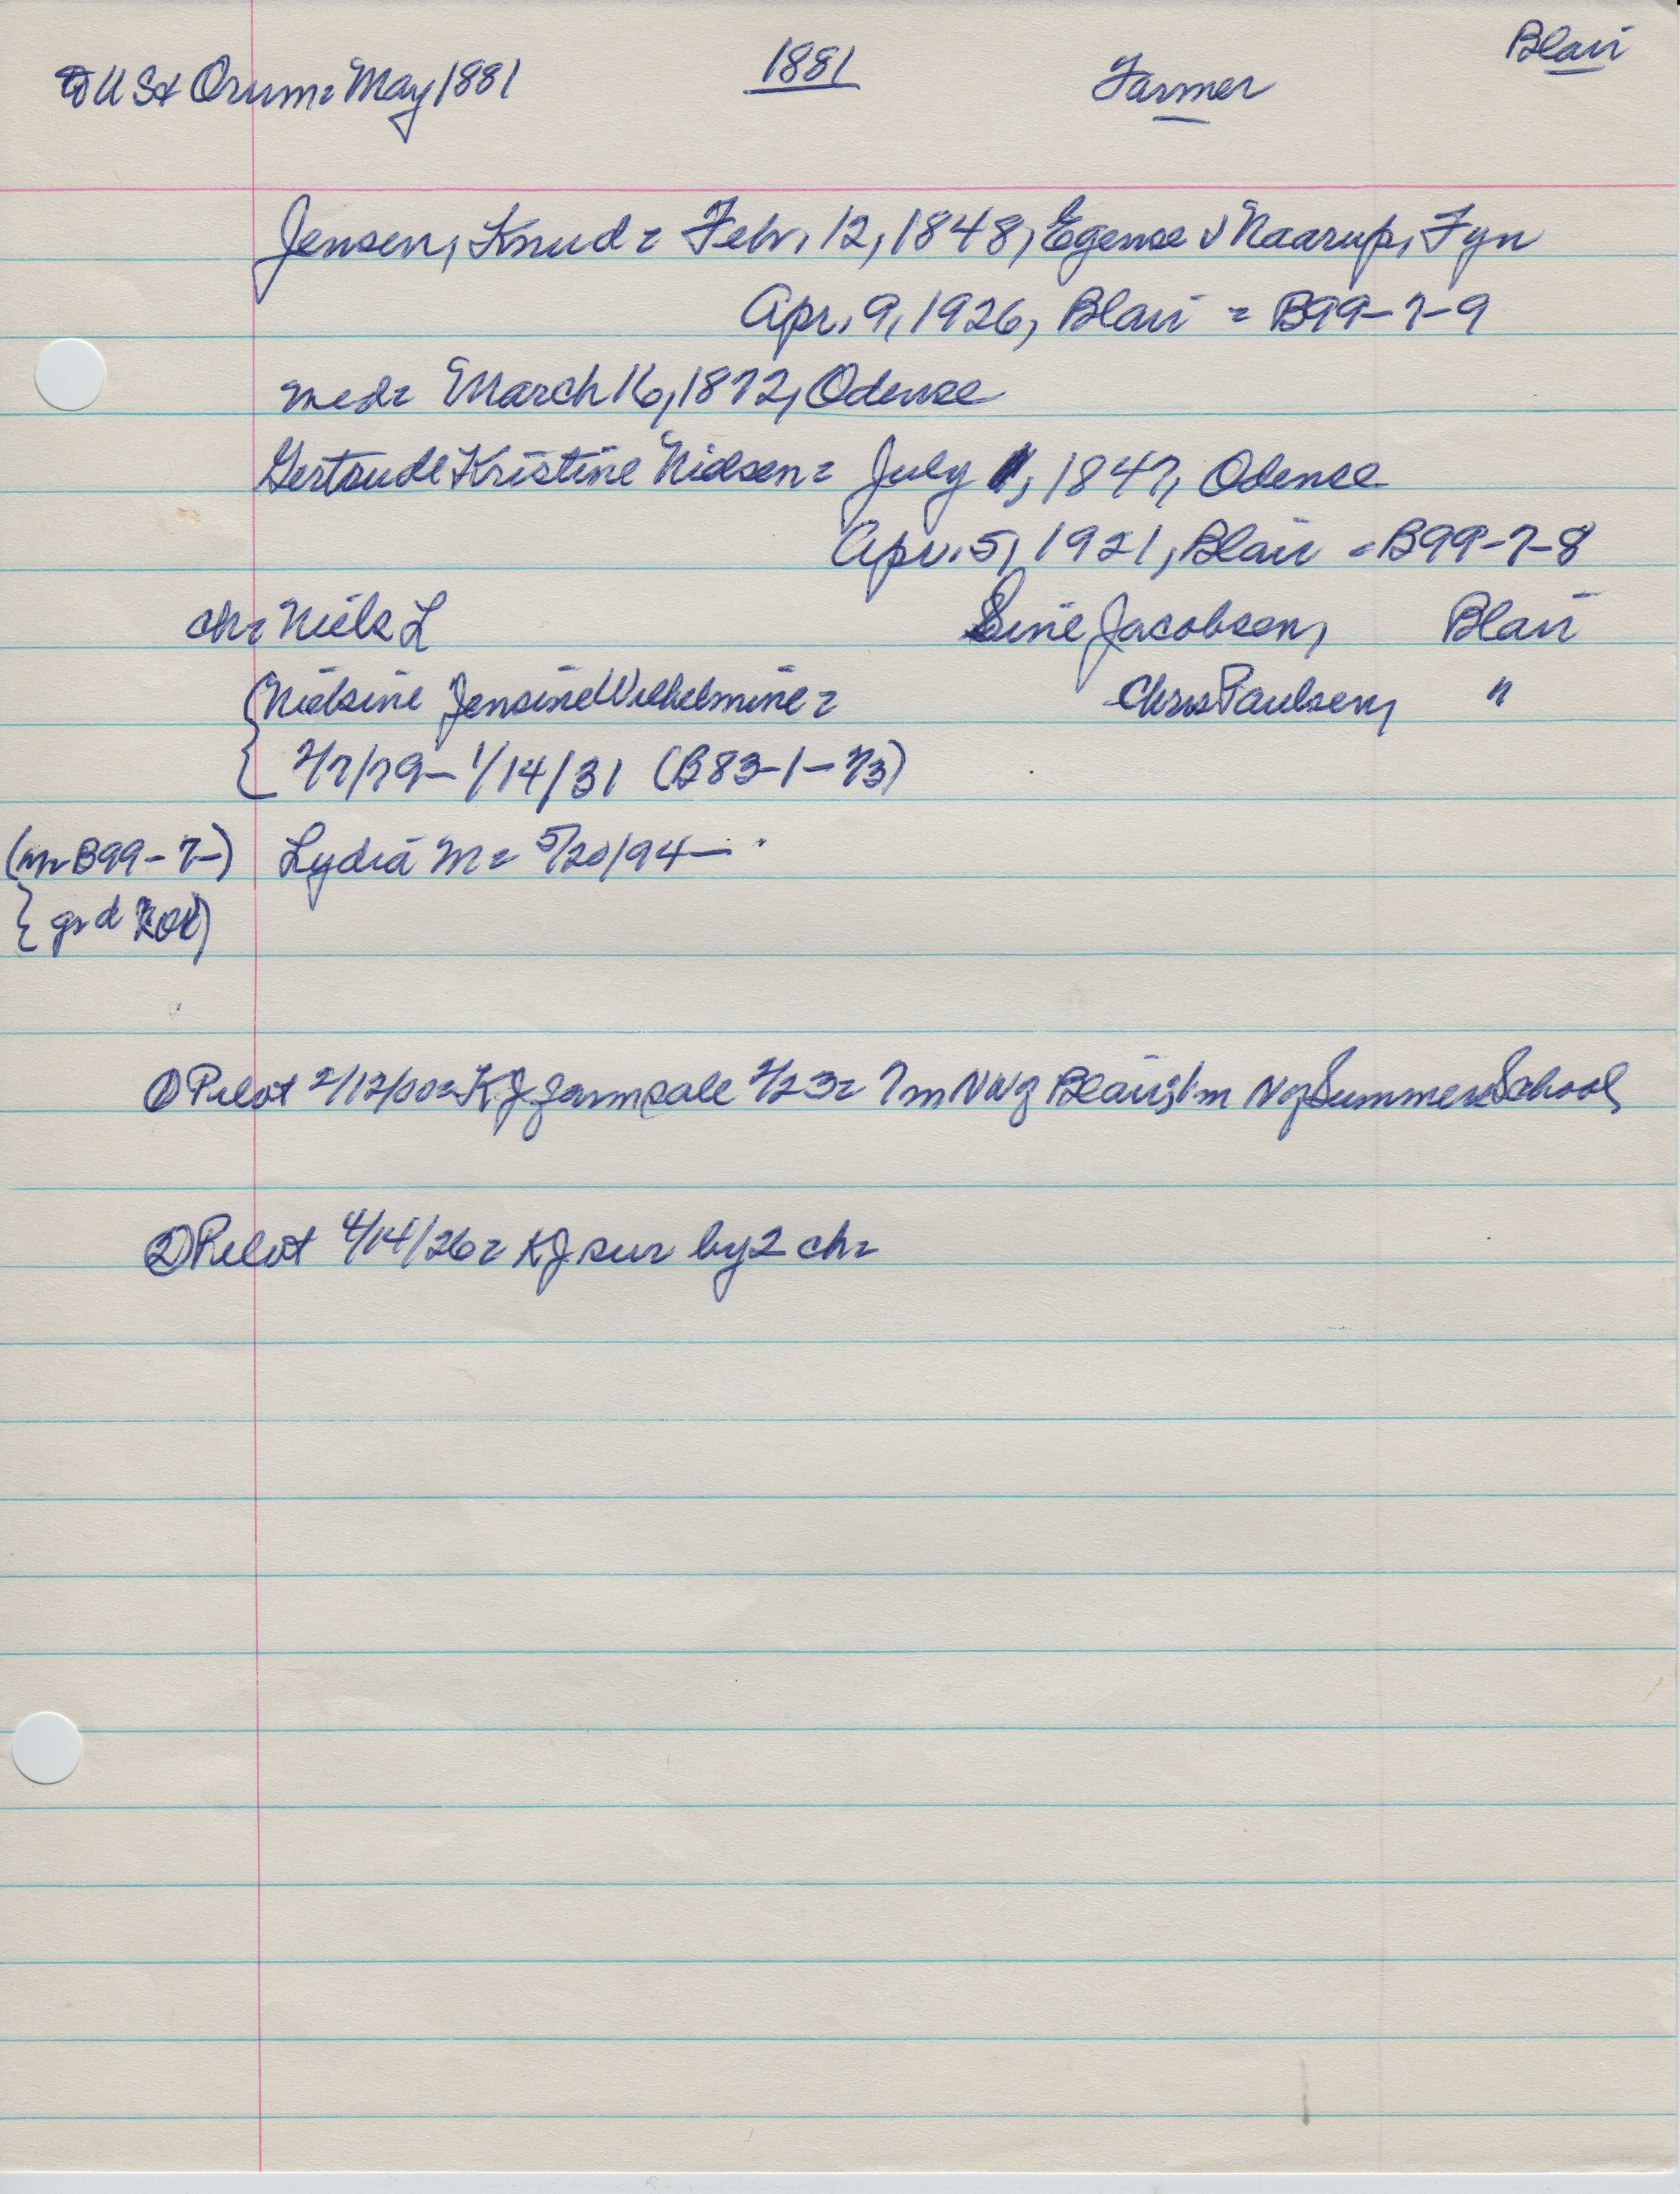 US & Orum = May 1881 1881 Farmer Blair
Jensen, Knud = Febr. 12, 1848, Egense v Naarup, Fyn
Apr. 9, 1926, Blair = B99-7-9
med = March 16, 1872, Odense
Gertrude Kristine Nielsen = July 1, 1847, Odense
Apr. 5, 1921, Blair = B99-7-8
ch = Niels L Sine Jacobsen, Blair
Nielsine Jensine Wilhelmine = Chris Paulsen, "
2/7/79 - 1/14/31 (B83-1-7/3)
(B99-7-) Lydia M = 5/20/94 -
{ grd
① Pilot 2/12/00 = KJ farm sale 2/23 = 7m NW of Blair, 1m N of Summer School
② Pilot 4/14/26 = KJ sur by 2 ch =